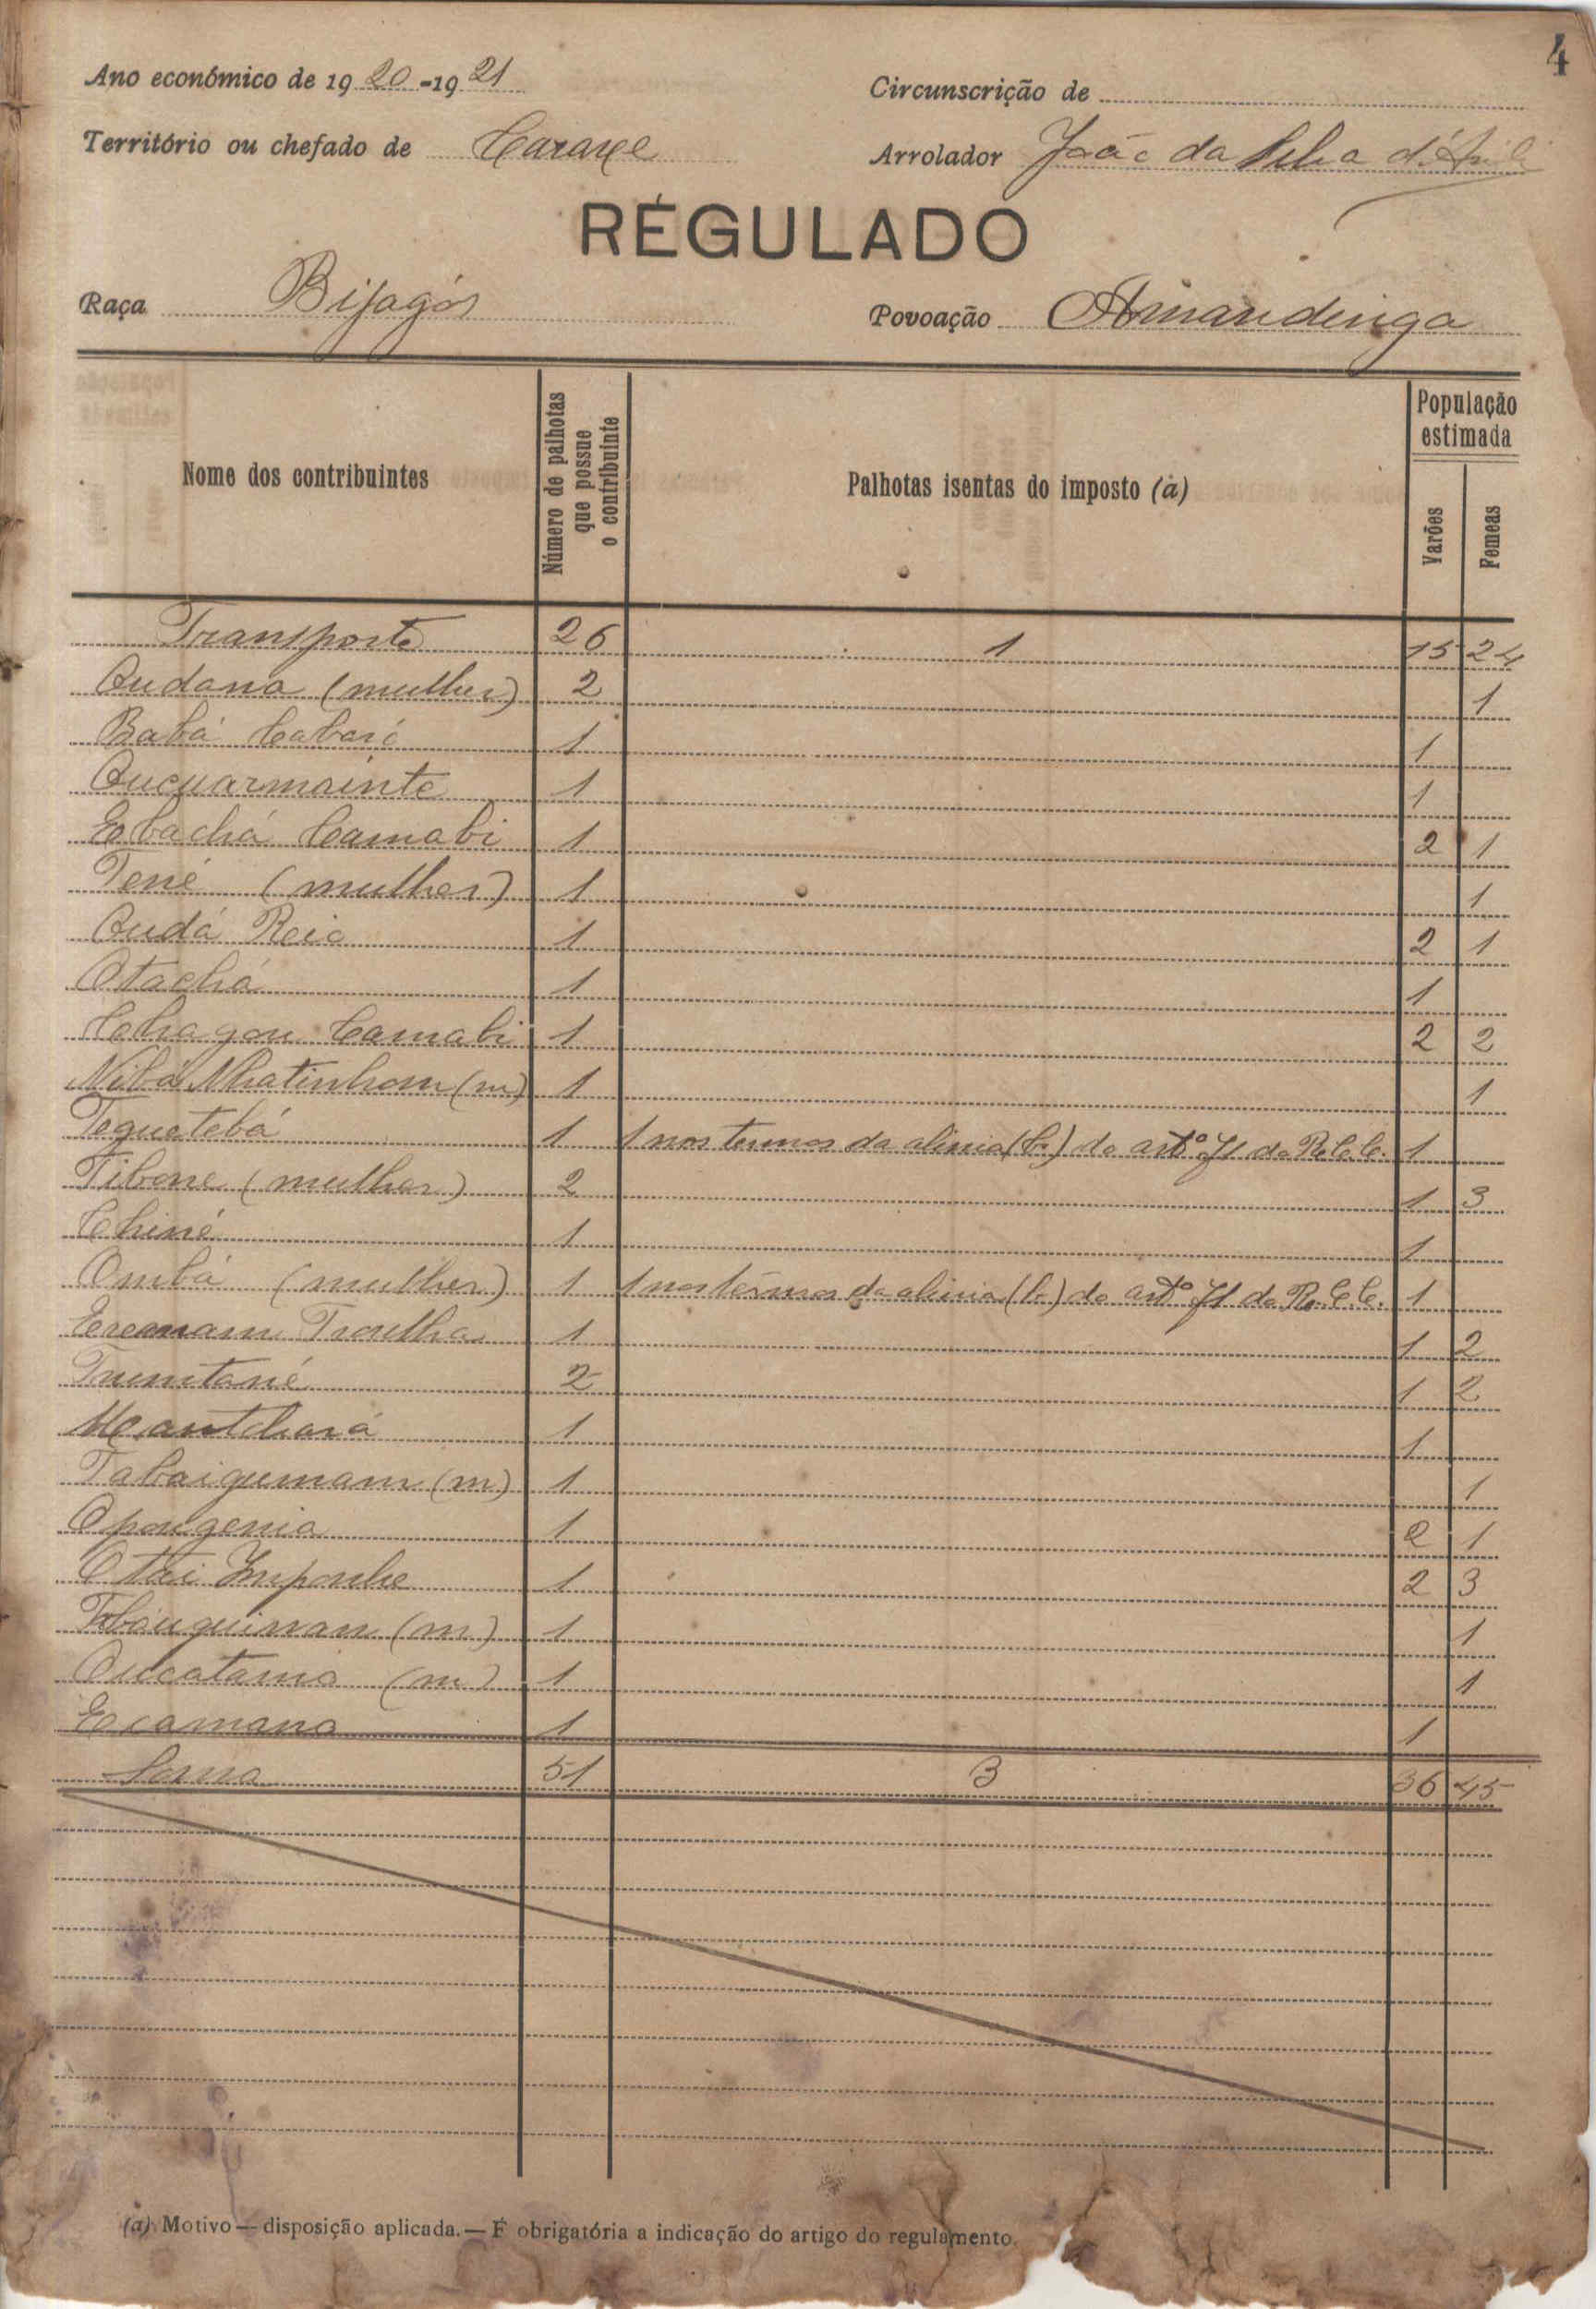 4
Ano económico de 1920-1921
Circunscrição de
Território ou chefado de Caraxe
Arrolador João da Silva
RÉGULADO
Raça Bijagós
Povoação Amandinga
Nome dos contribuintes
Número de palhotas que possue o contribuinte
Palhotas isentas do imposto (a)
População estimada
Varões
Femeas
Transporte 26 1 15 24
Oudana (mulher) 2 1
Babá Cabaró 1 1
Oucuarmointe 1 1
Ebachá Camabi 1 2 1
Tené (mulher) 1 1
Oudá Reio 1 2 1
Otachá 1 1
Cohagou Camabi 1 2 2
Nibá Nhatinhom (m) 1 1
Tequetebá 1 1 nos termos da alinia (b) do artº 71 do R.C.C. 1
Tibone (mulher) 2 1 3
Chiné 1 1
Ombá (mulher) 1 1 nos térmos da alinia (b) do artº 71 do R.C.C. 1
1 1 2
2 1 2
1 1
Tabaigumam (m) 1 1
1 2 1
1 2 3
(m) 1 1
(m) 1 1
Ecamana 1 1
Soma 51 3 36 45
(a) Motivo — disposição aplicada. — É obrigatória a indicação do artigo do regulamento.